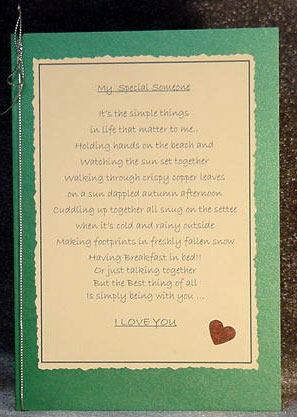 My Special Someone
It's the simple things
in life that matter to me..
Holding hands on the beach and
Watching the sun set together
Walking through crispy copper leaves
on a sun dappled autumn afternoon
Cuddling up together all snug on the settee
when it's cold and rainy outside
Making footprints in freshly fallen snow
Having Breakfast in bed!!
Or just talking together
But the Best thing of all
Is simply being with you ...
I LOVE YOU